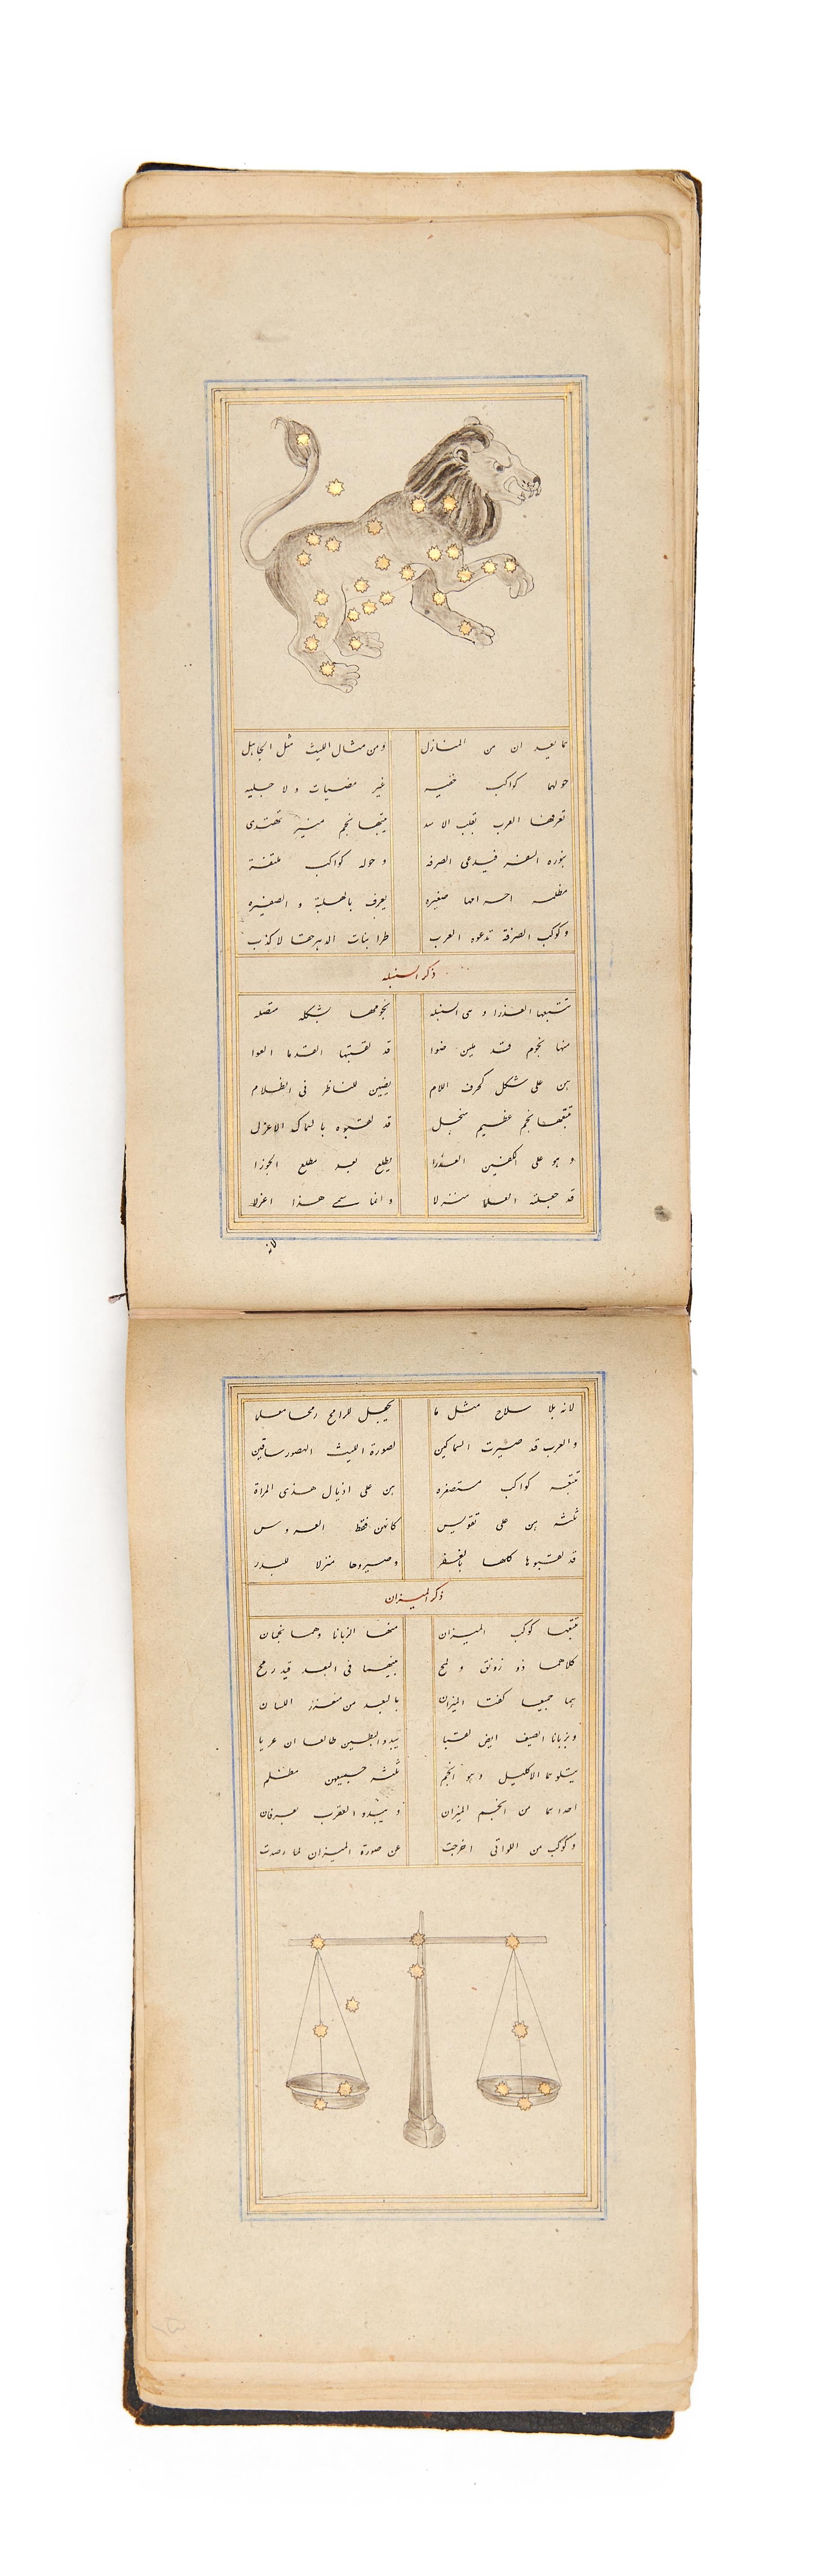 مما يعد ان من المنازل ومن مثال الليث مثل الجاهل
حولها كواكب خفيه غير مضيات ولا جليه
تعرفها العرب بقلب الاسد يتبعها نجم منير تهتدى
بنوره السفر فيدعى الصرفه وحوله كواكب ملتفة
مظلمه صغيره يعرف بالهلبة و الصفيره
وكوكب الصرفة تدعوه العرب طرا بناب الدهر حقا لا كذب
ذكر السنبله
تتبعها العذرا و هى السنبله نجومها بشكله متصله
منها نجوم قد ملين ضوا قد لقبتها القدما العوا
هن على شكل كحرف اللام يضين للناظر فى الظلام
تتبعها نجم عظيم منجل قد لقبوه بالسماك الاعزل
و هو على الكفين العذرا يطلع بعد مطلع الجوزا
قد جعلته العلما منزلا و انما سمى هذا اعزلا
لانه
لانه بلا سلاح مثل ما يجعل للرامح رمحا معلما
والعرب قد صيرت السماكين لصورة الليث الهصور ساقين
تتبعه كواكب مستصغره هن على اذيال هذى المراة
ثلثه هن على تقويس كانهن فقط العروس
قد لقبوها كلها بالغفر وصيروها منزلا للبدر
ذكر الميزان
تتبعها كوكب الميزان منها الزبانا وهما نجمان
كلاهما ذو رونق و لمح بينهما فى البعد قيد رمح
هما جميعا كفتا الميزان بالبعد من مغرز اللسان
وبزبانا الصيف ايض لقبا يبدو البطين طالعا ان غربا
يتلوهما الاكليل وهو انجم ثلثه جميعهن مظلم
احداها من انجم الميزان و يبدو العقرب يعرفان
وكوكب من اللواتى اخرجت عن صورة الميزان لما رصدت